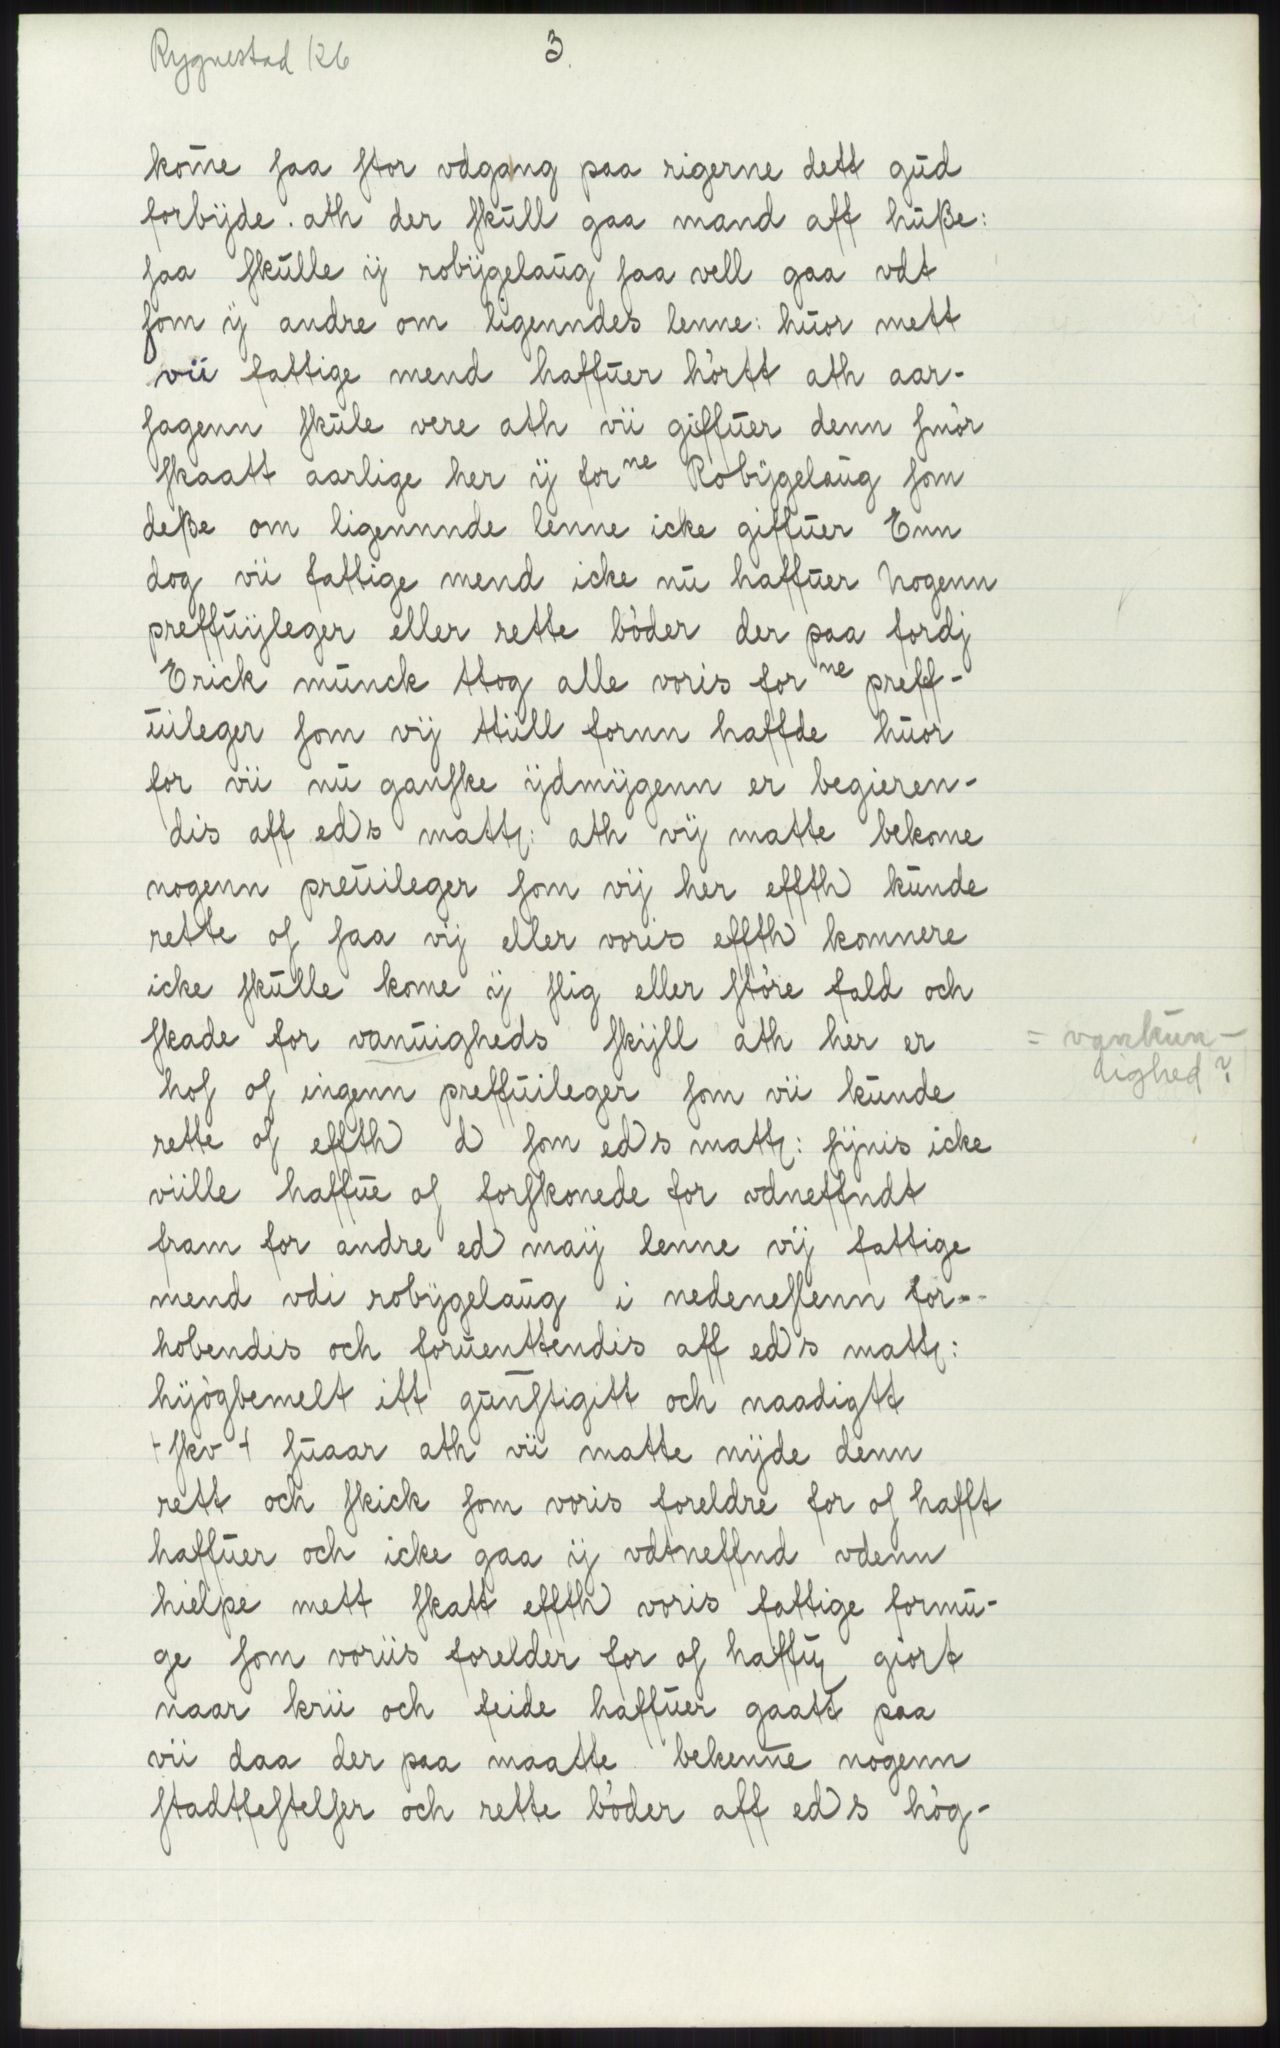 Rygnestad 126
3.
kom̄e saa stor vdgang paa rigerne dett gud
forbÿde. ath der skull gaa mand aff huße:
saa skulle ÿ robÿgelaug saa vell gaa vdt
som ÿ andre om ligenndes lenne: huor mett
vii fattige mend haffuer hòrtt ath aar-
sagenn skule vere ath vii giffuer denn smòr
skaatt aarlige her ÿ for ne Robÿgelaug som
deße om ligennnde lenne icke giffuer Enn
dog vii fattige mend icke nu haffuer Nogenn
preffuÿleger eller rette bòder der paa fordj
Erick munck ttog alle voris for ne preff-
uileger som vÿ ttiill fornn haffde huor
for vii nu ganske ÿdmÿgenn er begieren-
dis aff eds matt: ath vÿ matte bekome
nogenn preuileger som vÿ her effth kunde
rette os saa vÿ eller voris effth komnere
icke skulle kome ÿ slig eller stòre fald och
skade for vanuigheds skÿll ath her er
hos os ingenn preffuileger som vii kunde
rette os effth d som eds matt: sÿnis icke
viille haffue os forskonede for vdneffndt
fram for andre ed maÿ lenne vÿ fattige
mend vdi robÿgelaug i nedenessenn for--
hobendis och foruenttendis aff eds matt:
hÿògbemelt itt gunstigitt och naadigtt
+ skv + suaar ath vii matte nÿde denn
rett och skick som voris foreldre for os hafft
haffuer och icke gaa ÿ vdtneffnd vdenn
hielpe mett skatt effth voris fattige formu-
ge som voriis forelder for os haffu giort
naar krii och feide haffuer gaatt paa
vii daa der paa maatte bekenn̄e nogenn
stadtfestelser och rette bòder aff eds hòg-
= vankun-
dighed?